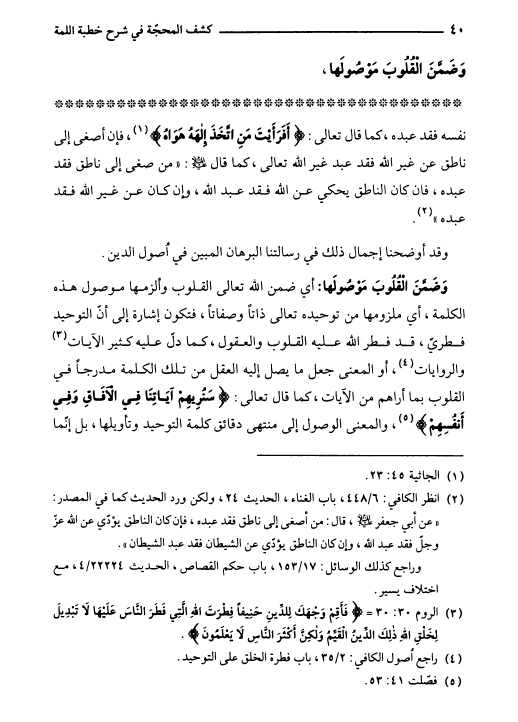 ٤٠ كشف المحجّة في شرح خطبة اللمة
وَضَمَّنَ الْقُلُوبَ مَوْصُولَها،
نفسه فقد عبده، كما قال تعالى: ﴿أَفَرَأَيْتَ مَنِ اتَّخَذَ إِلَهَهُ هَوَاهُ﴾(١)، فإن أصغى إلى
ناطق عن غير الله فقد عبد غير الله تعالى، كما قال ﷺ: «من صغى إلى ناطق فقد
عبده، فان كان الناطق يحكي عن الله فـقـد عبـد الله، وإن كـان عن غـير الله فـقـد
عبده»(٢).
وقد أوضحنا إجمال ذلك في رسالتنا البرهان المبين في اُصول الدين.
وَضَمَّنَ الْقُلُوبَ مَوْصُولَها: أي ضمن الله تعالى القلوب وألزمـها مـوصول هـذه
الكلمة، أي ملزومها من توحيده تعالى ذاتاً وصفاتاً، فتكون إشارة إلى أنّ التوحيد
فـطريّ، قـد فـطر الله عـليه القلوب والعقول، كـما دلّ عليه كثير الآيات(٣)
والروايات(٤)، أو المعنى جعل ما يصل إليه العقل من تـلك الكلمة مـدرجاً فـي
القلوب بما أراهم من الآيات، كما قال تعالى: ﴿سَنُرِيهِمْ آيَاتِنَا فِي الْآفَاقِ وَفِي
أَنفُسِهِمْ﴾(٥)، والمعنى الوصول إلى منتهى دقائق كلمة التوحيد وتأويلها، بل إنّما
(١) الجاثية ٤٥: ٢٣.
(٢) انظر الكافي: ٤٤٨/٦، باب الغناء، الحديث ٢٤، ولكن ورد الحديث كما في المصدر:
«عن أبي جعفر ﷺ، قال: من أصغى إلى ناطق فقد عبده، فإن كان الناطق يؤدّي عن الله عزّ
وجلّ فقد عبد الله، وإن كان الناطق يؤدّي عن الشيطان فقد عبد الشيطان».
وراجع كذلك الوسائل: ١٥٣/١٧، باب حكم القصاص، الحديث ٤/٢٢٢٢٤، مـع
اختلاف يسير.
(٣) الروم ٣٠: ٣٠ = ﴿فَأَقِمْ وَجْهَكَ لِلدِّينِ حَنِيفاً فِطْرَتَ اللهِ الَّتِي فَطَرَ النَّاسَ عَلَيْهَا لَا تَبْدِيلَ
لِخَلْقِ اللهِ ذَلِكَ الدِّينُ الْقَيِّمُ وَلَكِنَّ أَكْثَرَ النَّاسِ لَا يَعْلَمُونَ﴾.
(٤) راجع اُصول الكافي: ٣٥/٢، باب فطرة الخلق على التوحيد.
(٥) فصّلت ٤١: ٥٣.